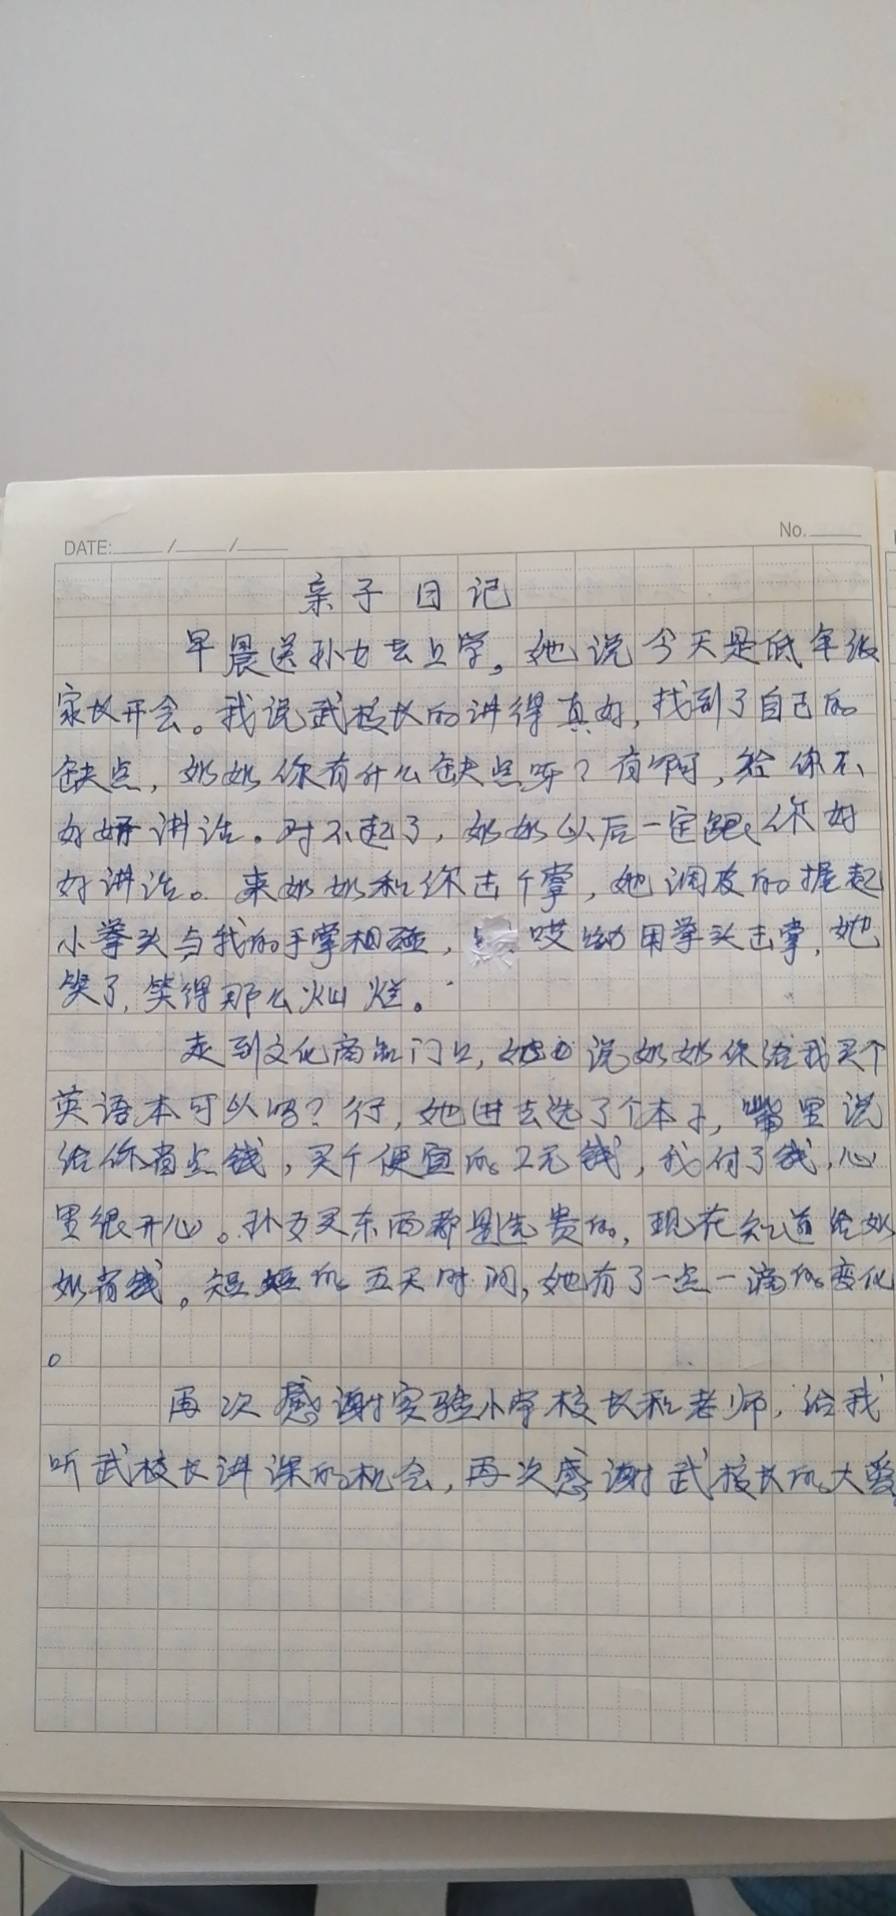 DATE: / /
No.
亲子日记
早晨送孙女去上学。她说今天是低年级
家长开会。我说武校长的讲得真好,找到了自己的
缺点,奶奶你有什么缺点呀?有啊,给你不
好好讲话。对不起了,奶奶以后一定跟你好
好讲话。来奶奶和你击个掌,她调皮的握起
小拳头与我的手掌相碰,哎呦用拳头击掌,她
笑了,笑得那么灿烂。
走到文化商店门口,她说奶奶你给我买个
英语本可以吗?行,她进去选了个本子,嘴里说
给你省点钱,买个便宜的2元钱,我付了钱,心
里很开心。孙女买东西都是选贵的,现在知道给奶
奶省钱。短短的五天时间,她有了一点一滴的变化
。
再次感谢实验小学校长和老师,给我
听武校长讲课的机会,再次感谢武校长的大爱